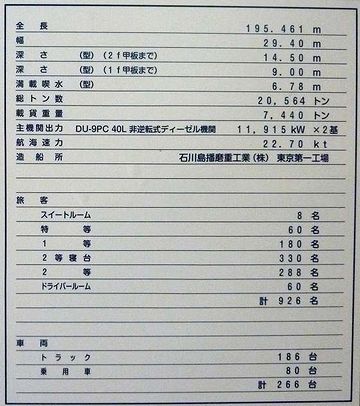 全長 195.461 m
幅 29.40 m
深さ (型) (2f甲板まで) 14.50 m
深さ (型) (1f甲板まで) 9.00 m
満載喫水 (型) 6.78 m
総トン数 20,564 トン
載貨重量 7,440 トン
主機関出力 DU-9PC 40L 非逆転式ディーゼル機関 11,915 kW ×2基
航海速力 22.70 kt
造船所 石川島播磨重工業(株) 東京第一工場
旅客
スイートルーム 8名
特等 60名
1等 180名
2等寝台 330名
2等 288名
ドライバールーム 60名
計 926名
車両
トラック 186台
乗用車 80台
計 266台